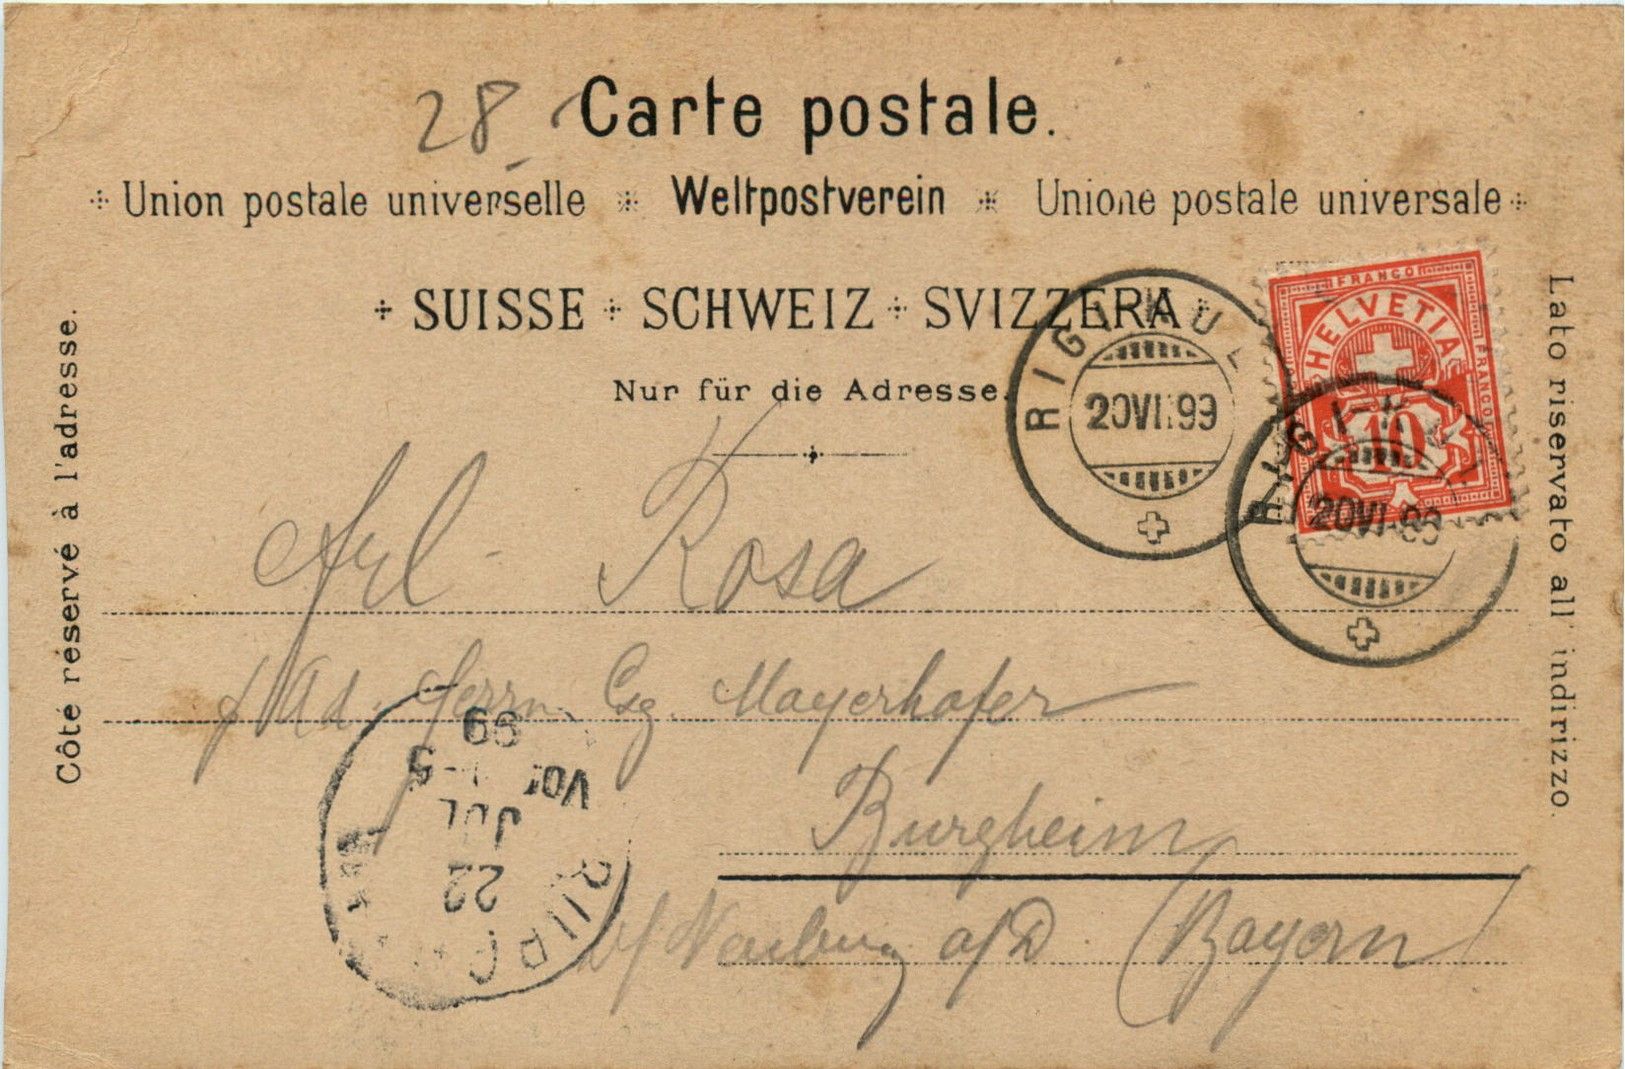 28
Carte postale.
Union postale universelle * Weltpostverein * Unione postale universale
SUISSE + SCHWEIZ + SVIZZERA
Nur für die Adresse.
Côté réservé à l'adresse.
Lato riservato all' indirizzo.
FRANCO
HELVETIA
FRANCO
10
RIGI-KUL
20 VII 99
RIGI-K
20 VI 99
Frl. Rosa
Ad. Herrn Gg. Mayerhofer
Burgheim
b/ Neuburg a/D. (Bayern)
BURG
22
JUL
Vor
99